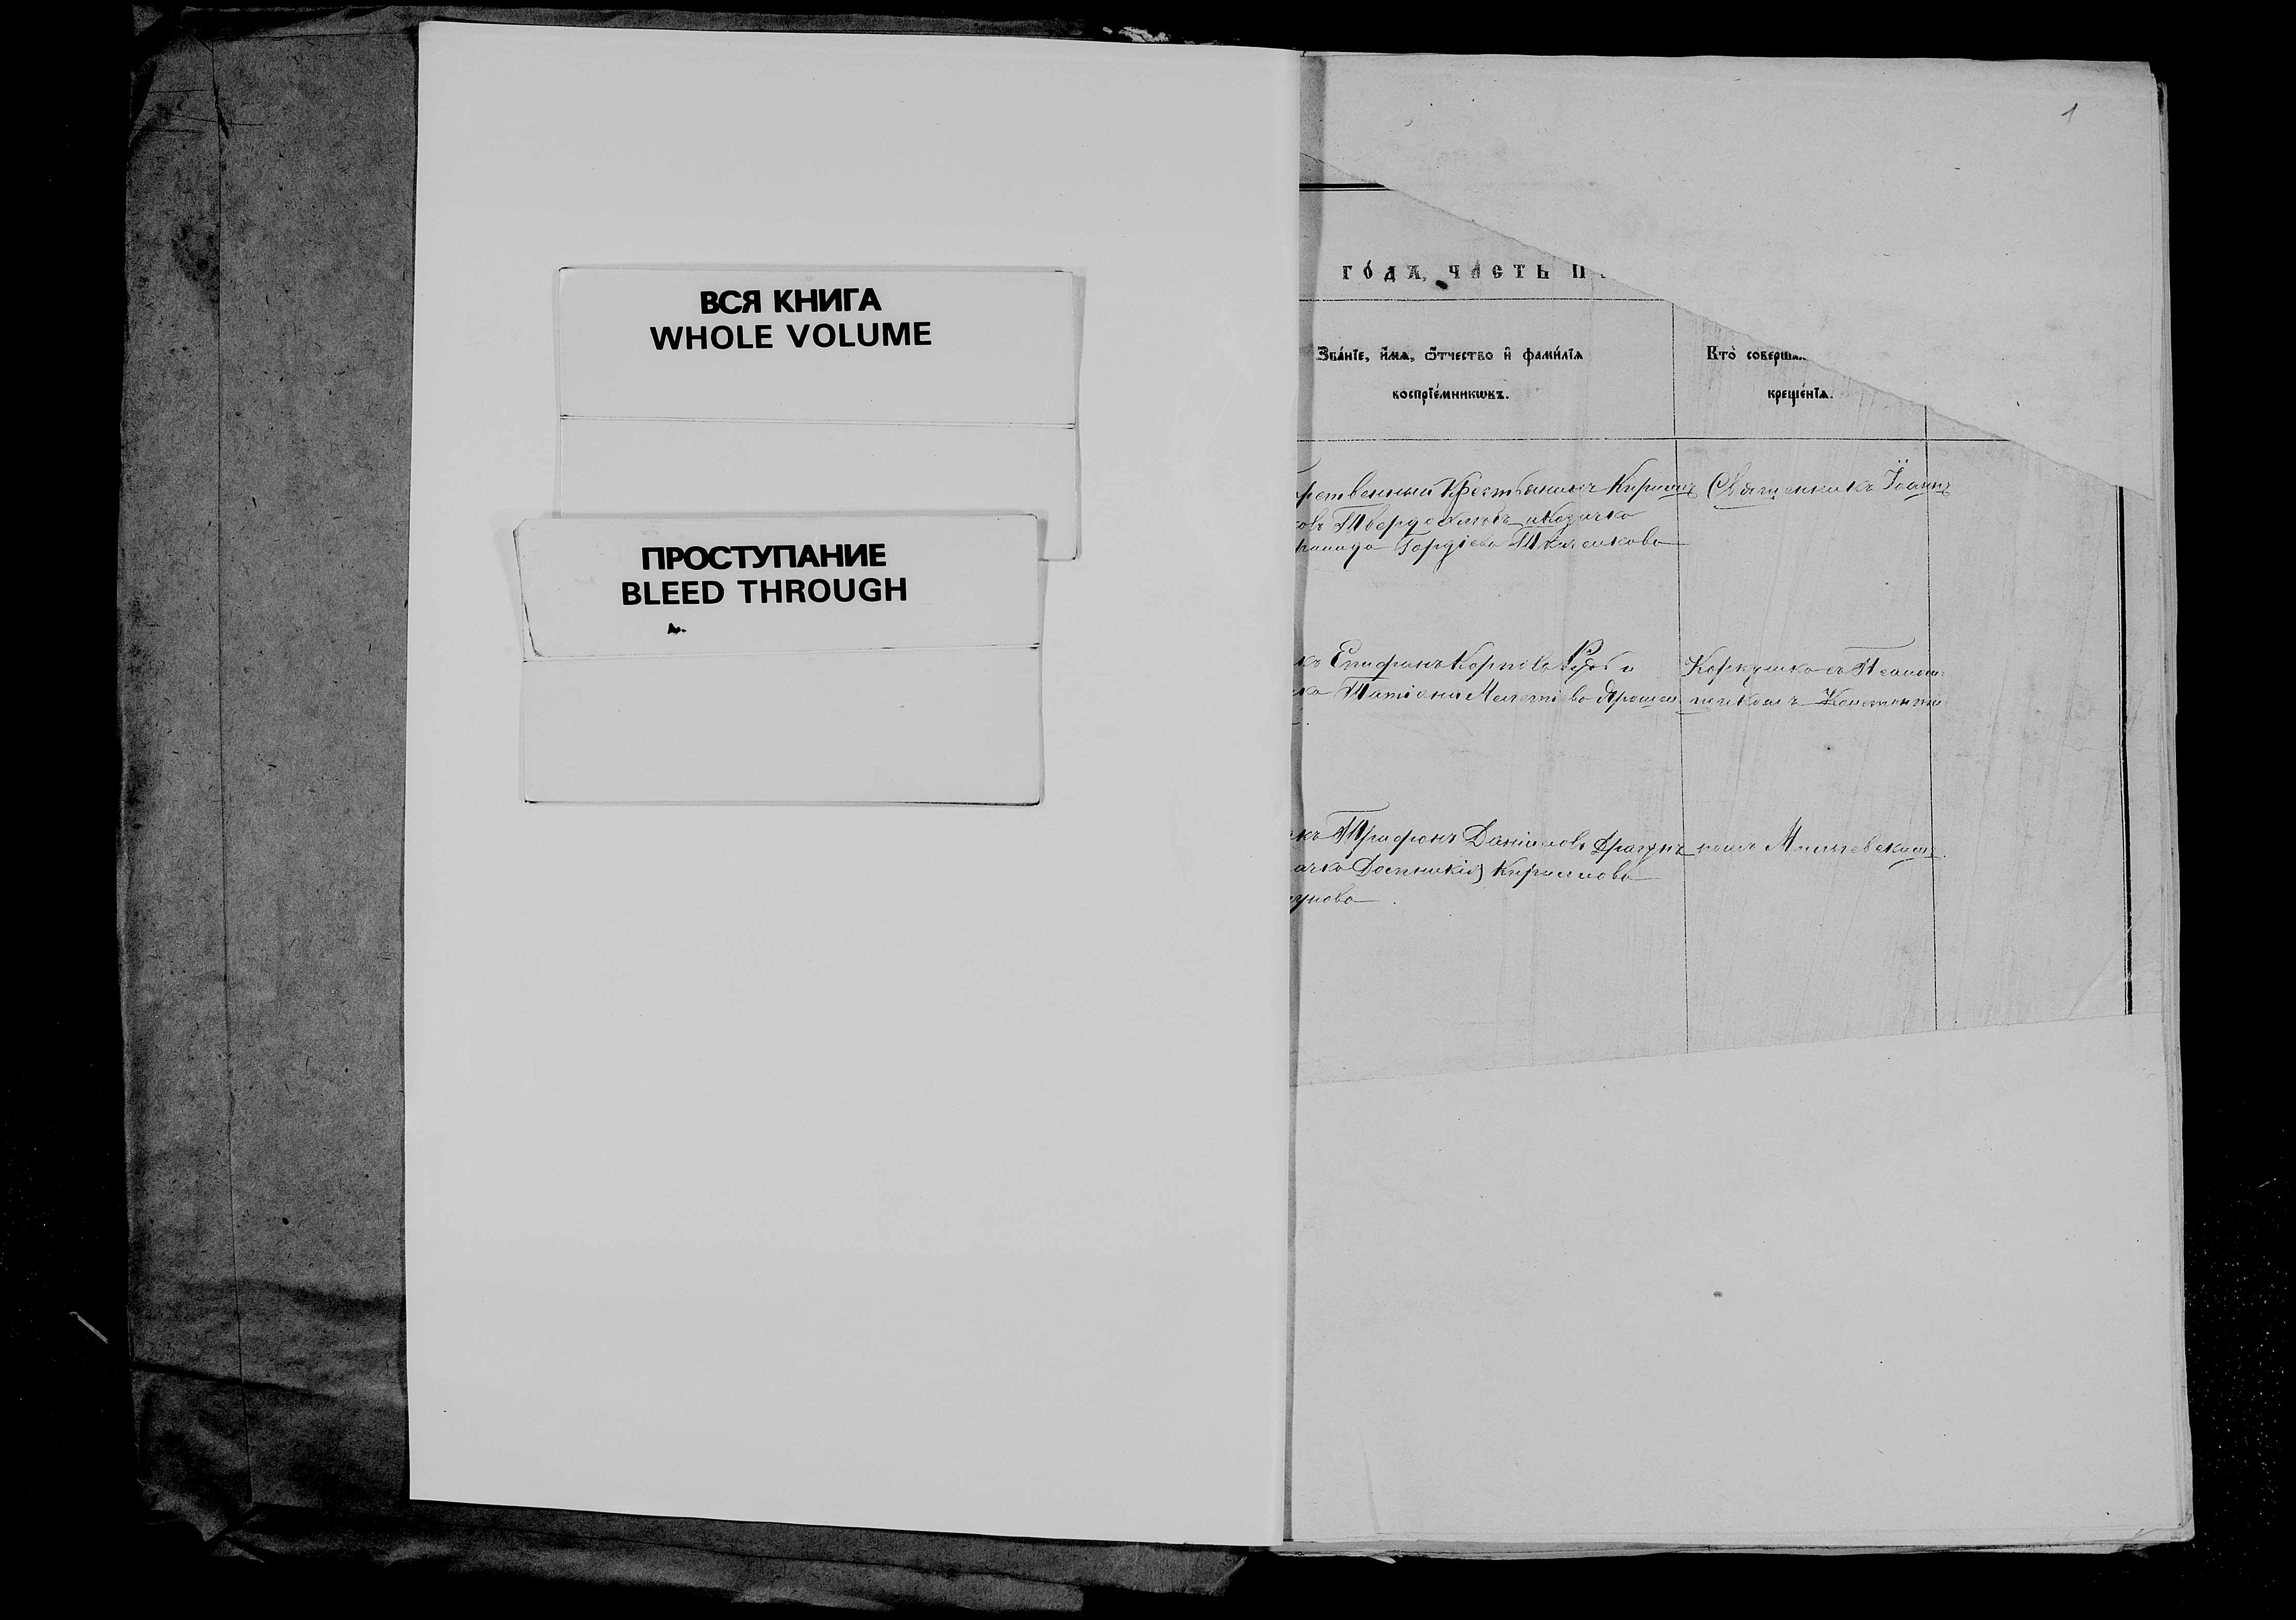 ВСЯ КНИГА
WHOLE VOLUME
ПРОСТУПАНИЕ
BLEED THROUGH
1
го́да, ча́сть п
Зва́нїе, и́мѧ, ѻ҆те́чество и҆ фами́лїѧ
воспрїе́мникѡвъ.
Кто̀ соверша
креще́нїѧ.
рственный Крестьянинъ Кирилъ
овъ Твердохлебъ и Козачка
Гордіева Ткаченкова
Священникъ Іоаннъ
къ Епифанъ Карповъ и
ка Татіана Мелетіева Ярошен
Коркушко съ Псалом
щикомъ Константи
къ Трифонъ Даніиловъ Драгунъ
ачка Домникія Кирилова
гунова
номъ